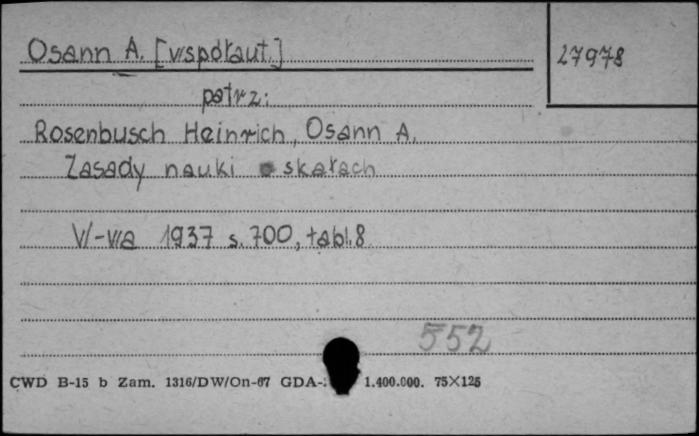 Osann A. [współaut.]
27978
patrz:
Rosenbusch Heinrich, Osann A.
Zasady nauki o skałach
W-wa 1937 s. 700, tabl. 8
552
CWD B-15 b Zam. 1316/DW/On-67 GDA- 1.400.000. 75×125